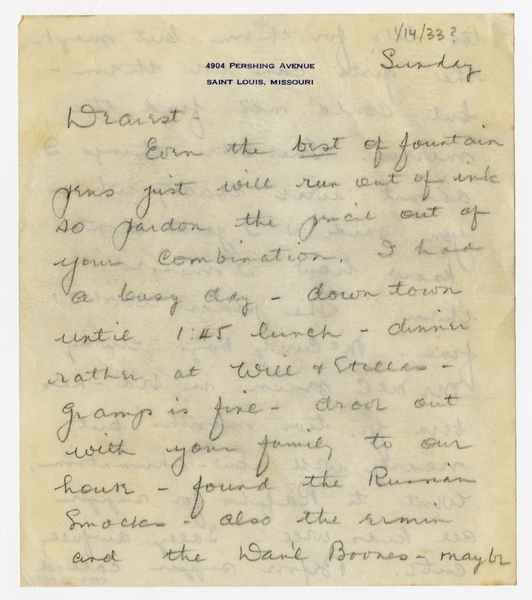 1/14/33?
4904 Pershing Avenue
Saint Louis, Missouri
Sunday
Dearest -
Even the best of fountain
pens just will run out of ink
so pardon the pencil out of
your combination. I had
a busy day - down town
until 1:45 lunch - dinner
rather at Will & Stellas -
Gramp is fine - drove out
with your family to our
house - found the Russian
Smocks - also the ermin
and the Danl Boones - maybe